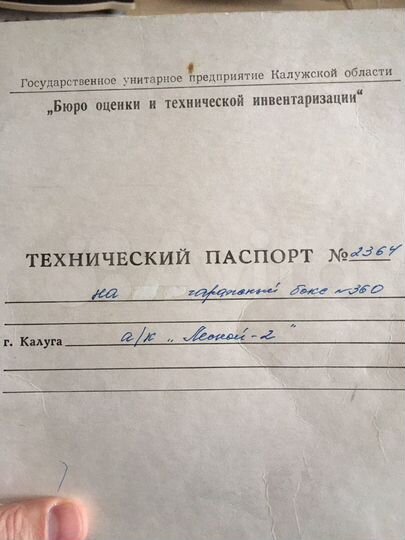 Государственное унитарное предприятие Калужской области
„Бюро оценки и технической инвентаризации“
ТЕХНИЧЕСКИЙ ПАСПОРТ № 2364
на гаражный бокс №360
г. Калуга а/к „Лесной-2"